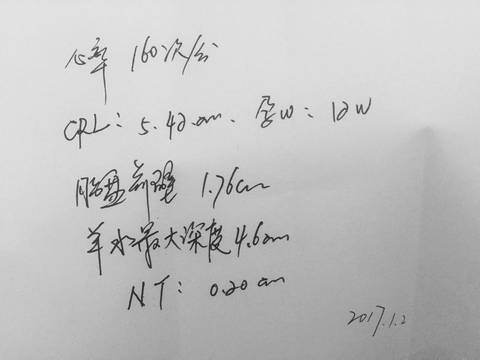 心率 160次/分
CRL: 5.42cm. 孕W: 12W
胎盘前壁 1.76cm
羊水最大深度4.6cm
NT: 0.20cm
2017.1.2